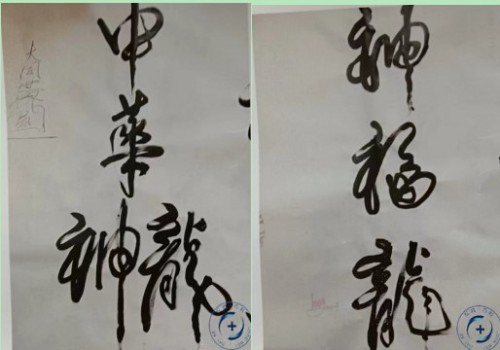 中華神龍
神福龍